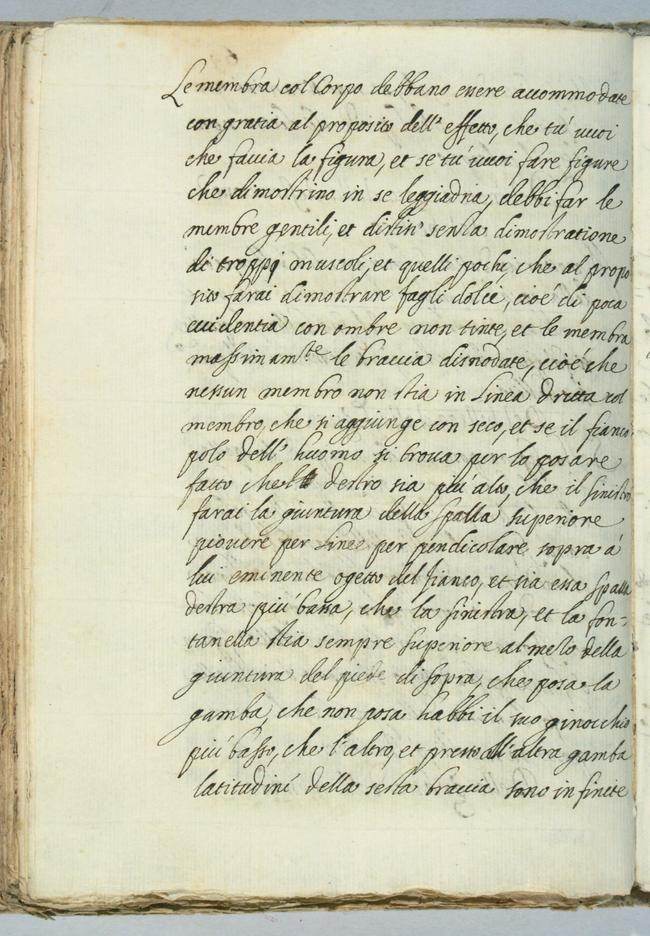 Le membra col Corpo debbano essere accommodate
con gratia al proposito dell' effetto, che tu' vuoi
che faccia la figura, et se tu' vuoi fare figure
che dimostrino in se leggiadria, debbi far le
membre gentili, et distise senza dimostratione
di troppi muscoli, et quelli pochi che al propo
sito farai dimostrare fagli dolci, cioé di poca
euidentia con ombre non tinte, et le membra
massimam.te le braccia disnodate, cioé che
nessun membro non stia in linea dritta col
membro, che si aggiunge con seco, et se il fianco
polo dell' huomo si trova per lo posare
fatto che 'l destro sia piú alto, che il sinistro
farai la giuntura della spalla superiore
piovere per linea per pendicolare sopra á
lui eminente ogetto del fianco, et sia essa spalla
destra piú bassa, che la sinistra, et la fon-
tanella stia sempre superiore al mezo della
giuntura del piede di sopra, che posa la
gamba, che non posa habbi il suo ginocchio
piú basso, che l'altro, et presso all' altra gamba
latitudini della testa braccia sono infinite